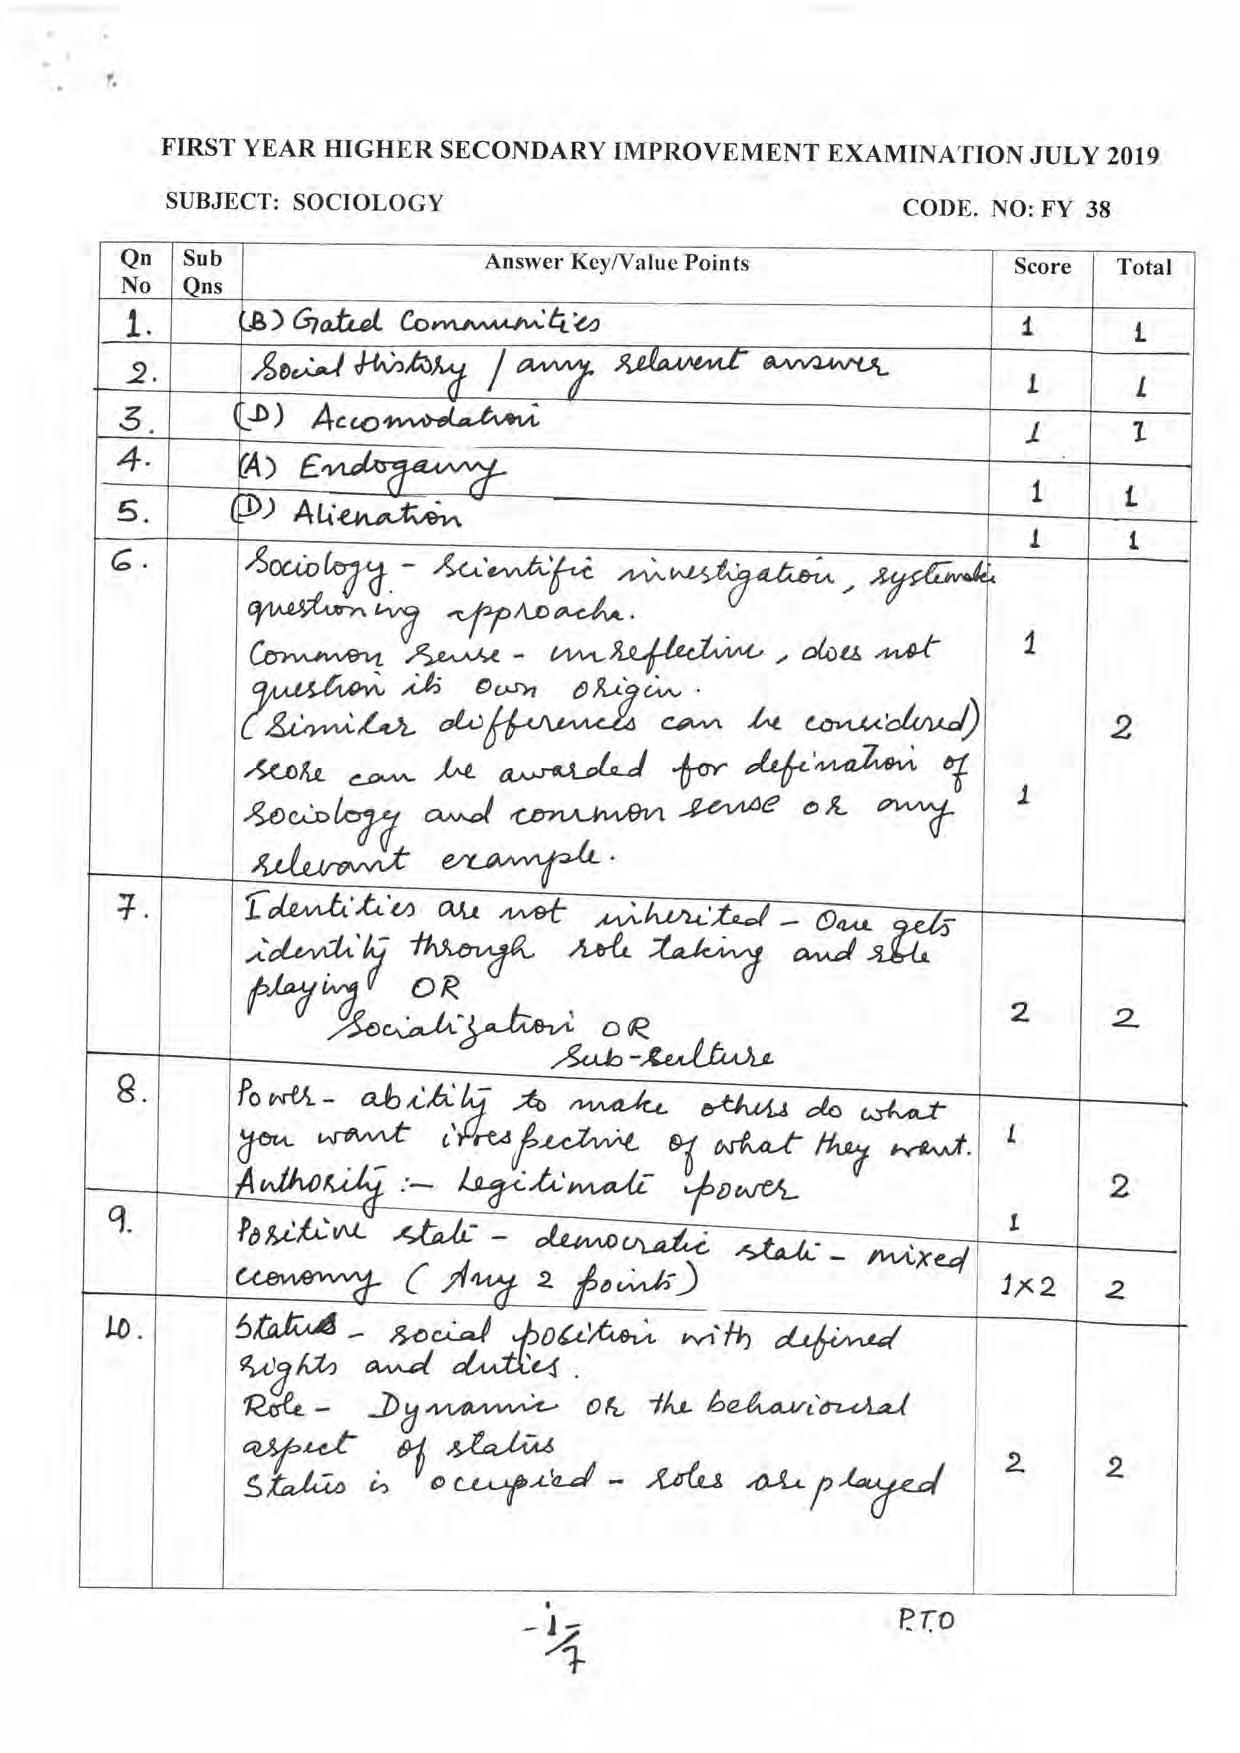 FIRST YEAR HIGHER SECONDARY IMPROVEMENT EXAMINATION JULY 2019
SUBJECT: SOCIOLOGY CODE. NO: FY 38
Qn No Sub Qns Answer Key/Value Points Score Total
1. (B) Gated Communities 1 1
2. Social History / any relavent answer 1 1
3. (D) Accomodation 1 1
4. (A) Endogamy 1 1
5. (D) Alienation 1 1
6. Sociology - Scientific investigation, systematic
questioning approache.
Common sense - unreflective, does not 1
question its own origin.
(Similar differences can be considered) 2
score can be awarded for defination of
sociology and common sense or any 1
relevant example.
7. Identities are not inherited - One gets
identity through role taking and role
playing OR
Socialization OR 2 2
Sub-culture
8. Power - ability to make others do what
you want irrespective of what they want. 1
Authority :- Legitimate power 2
1
9. Positive state - democratic state - mixed
economy (Any 2 points) 1×2 2
10. Status - social position with defined
rights and duties.
Role - Dynamic or the behavioural
aspect of status
Status is occupied - roles are played 2 2
-1/7 P.T.O